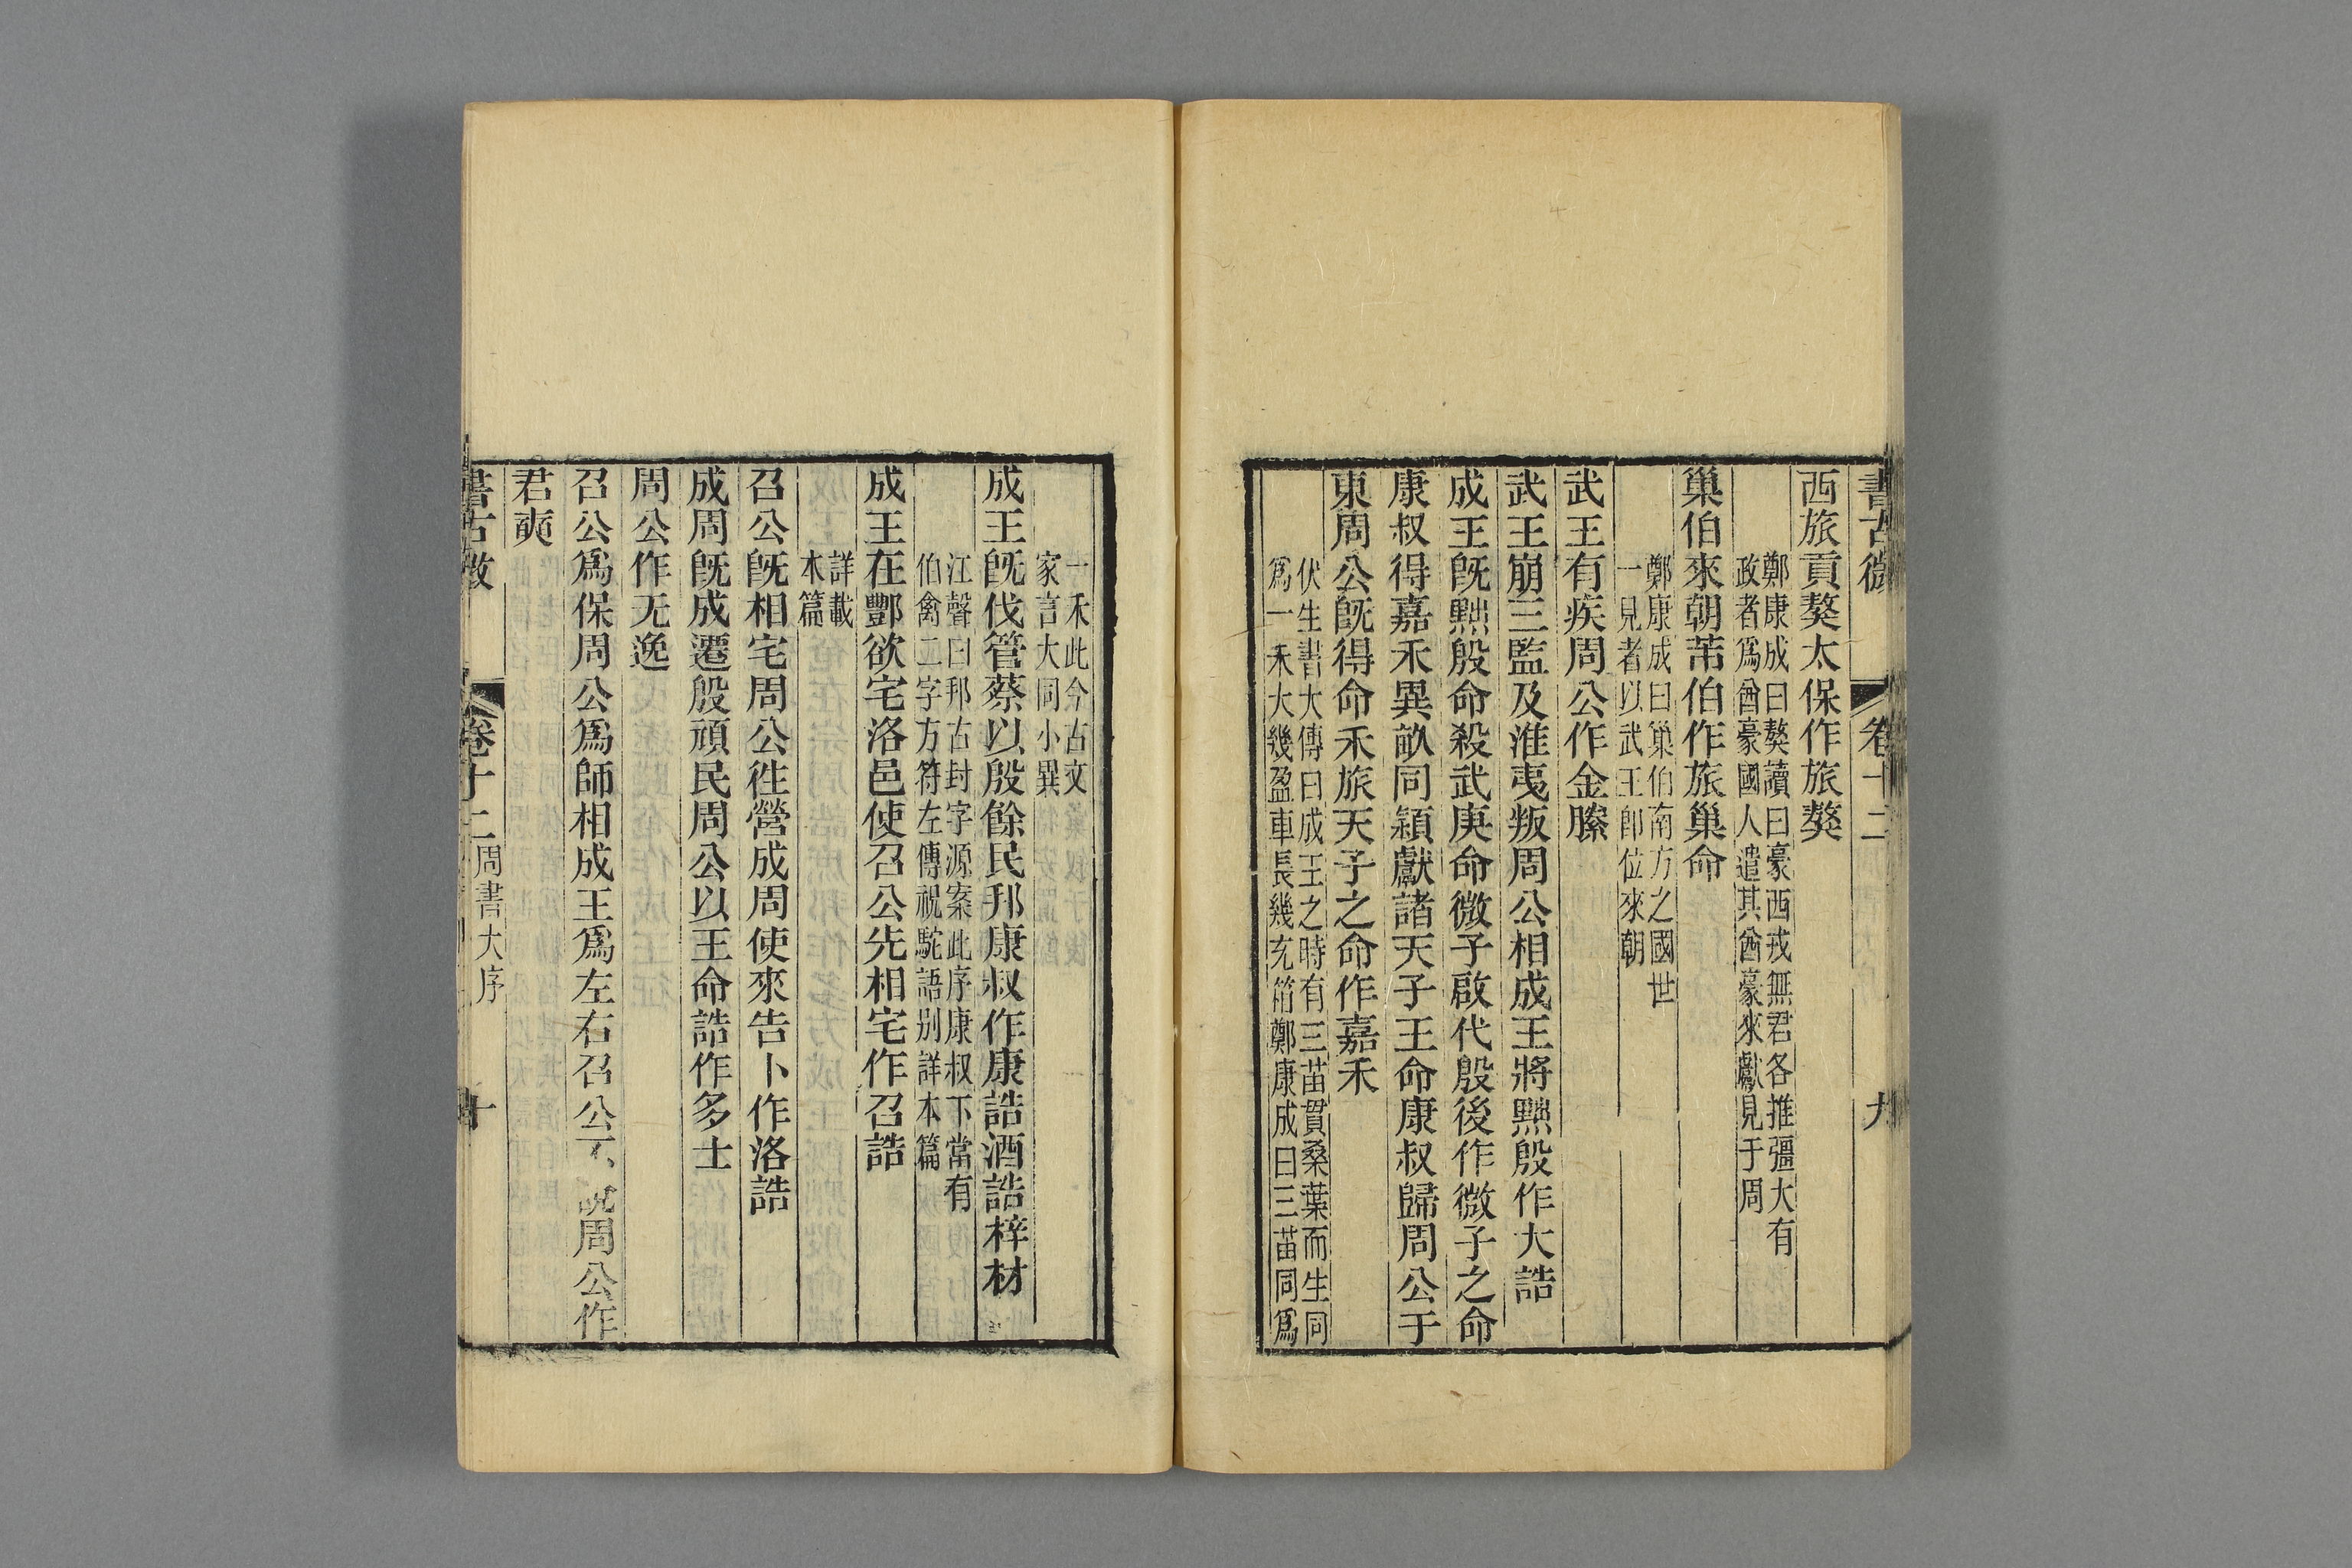 書古微 卷十二 九
西旅貢獒太保作旅獒
鄭康成曰獒讀曰豪西戎無君各推彊大有
政者爲酋豪國人遣其酋豪來獻見于周
巢伯來朝芮伯作旅巢命
鄭康成曰巢伯南方之國世
一見者以武王卽位來朝
武王有疾周公作金縢
武王崩三監及淮夷叛周公相成王將黜殷作大誥
成王旣黜殷命殺武庚命微子啟代殷後作微子之命
康叔得嘉禾異畝同穎獻諸天子王命康叔歸周公于
東周公旣得命禾旅天子之命作嘉禾
伏生書大傳曰成王之時有三苗貫桑葉而生同
爲一禾大幾盈車長幾充箱鄭康成曰三苗同爲
一禾此今古文
家言大同小異
成王旣伐管蔡以殷餘民邦康叔作康誥酒誥梓材
江聲曰邦古封字源案此序康叔下當有
伯禽二字方符左傳祝鮀語别詳本篇
成王在酆欲宅洛邑使召公先相宅作召誥
詳載
本篇
召公旣相宅周公徃營成周使來告卜作洛誥
成周旣成遷殷頑民周公以王命誥作多士
周公作无逸
召公爲保周公爲師相成王爲左右召公不說周公作
君奭
書古微 卷十二 周書大序 十